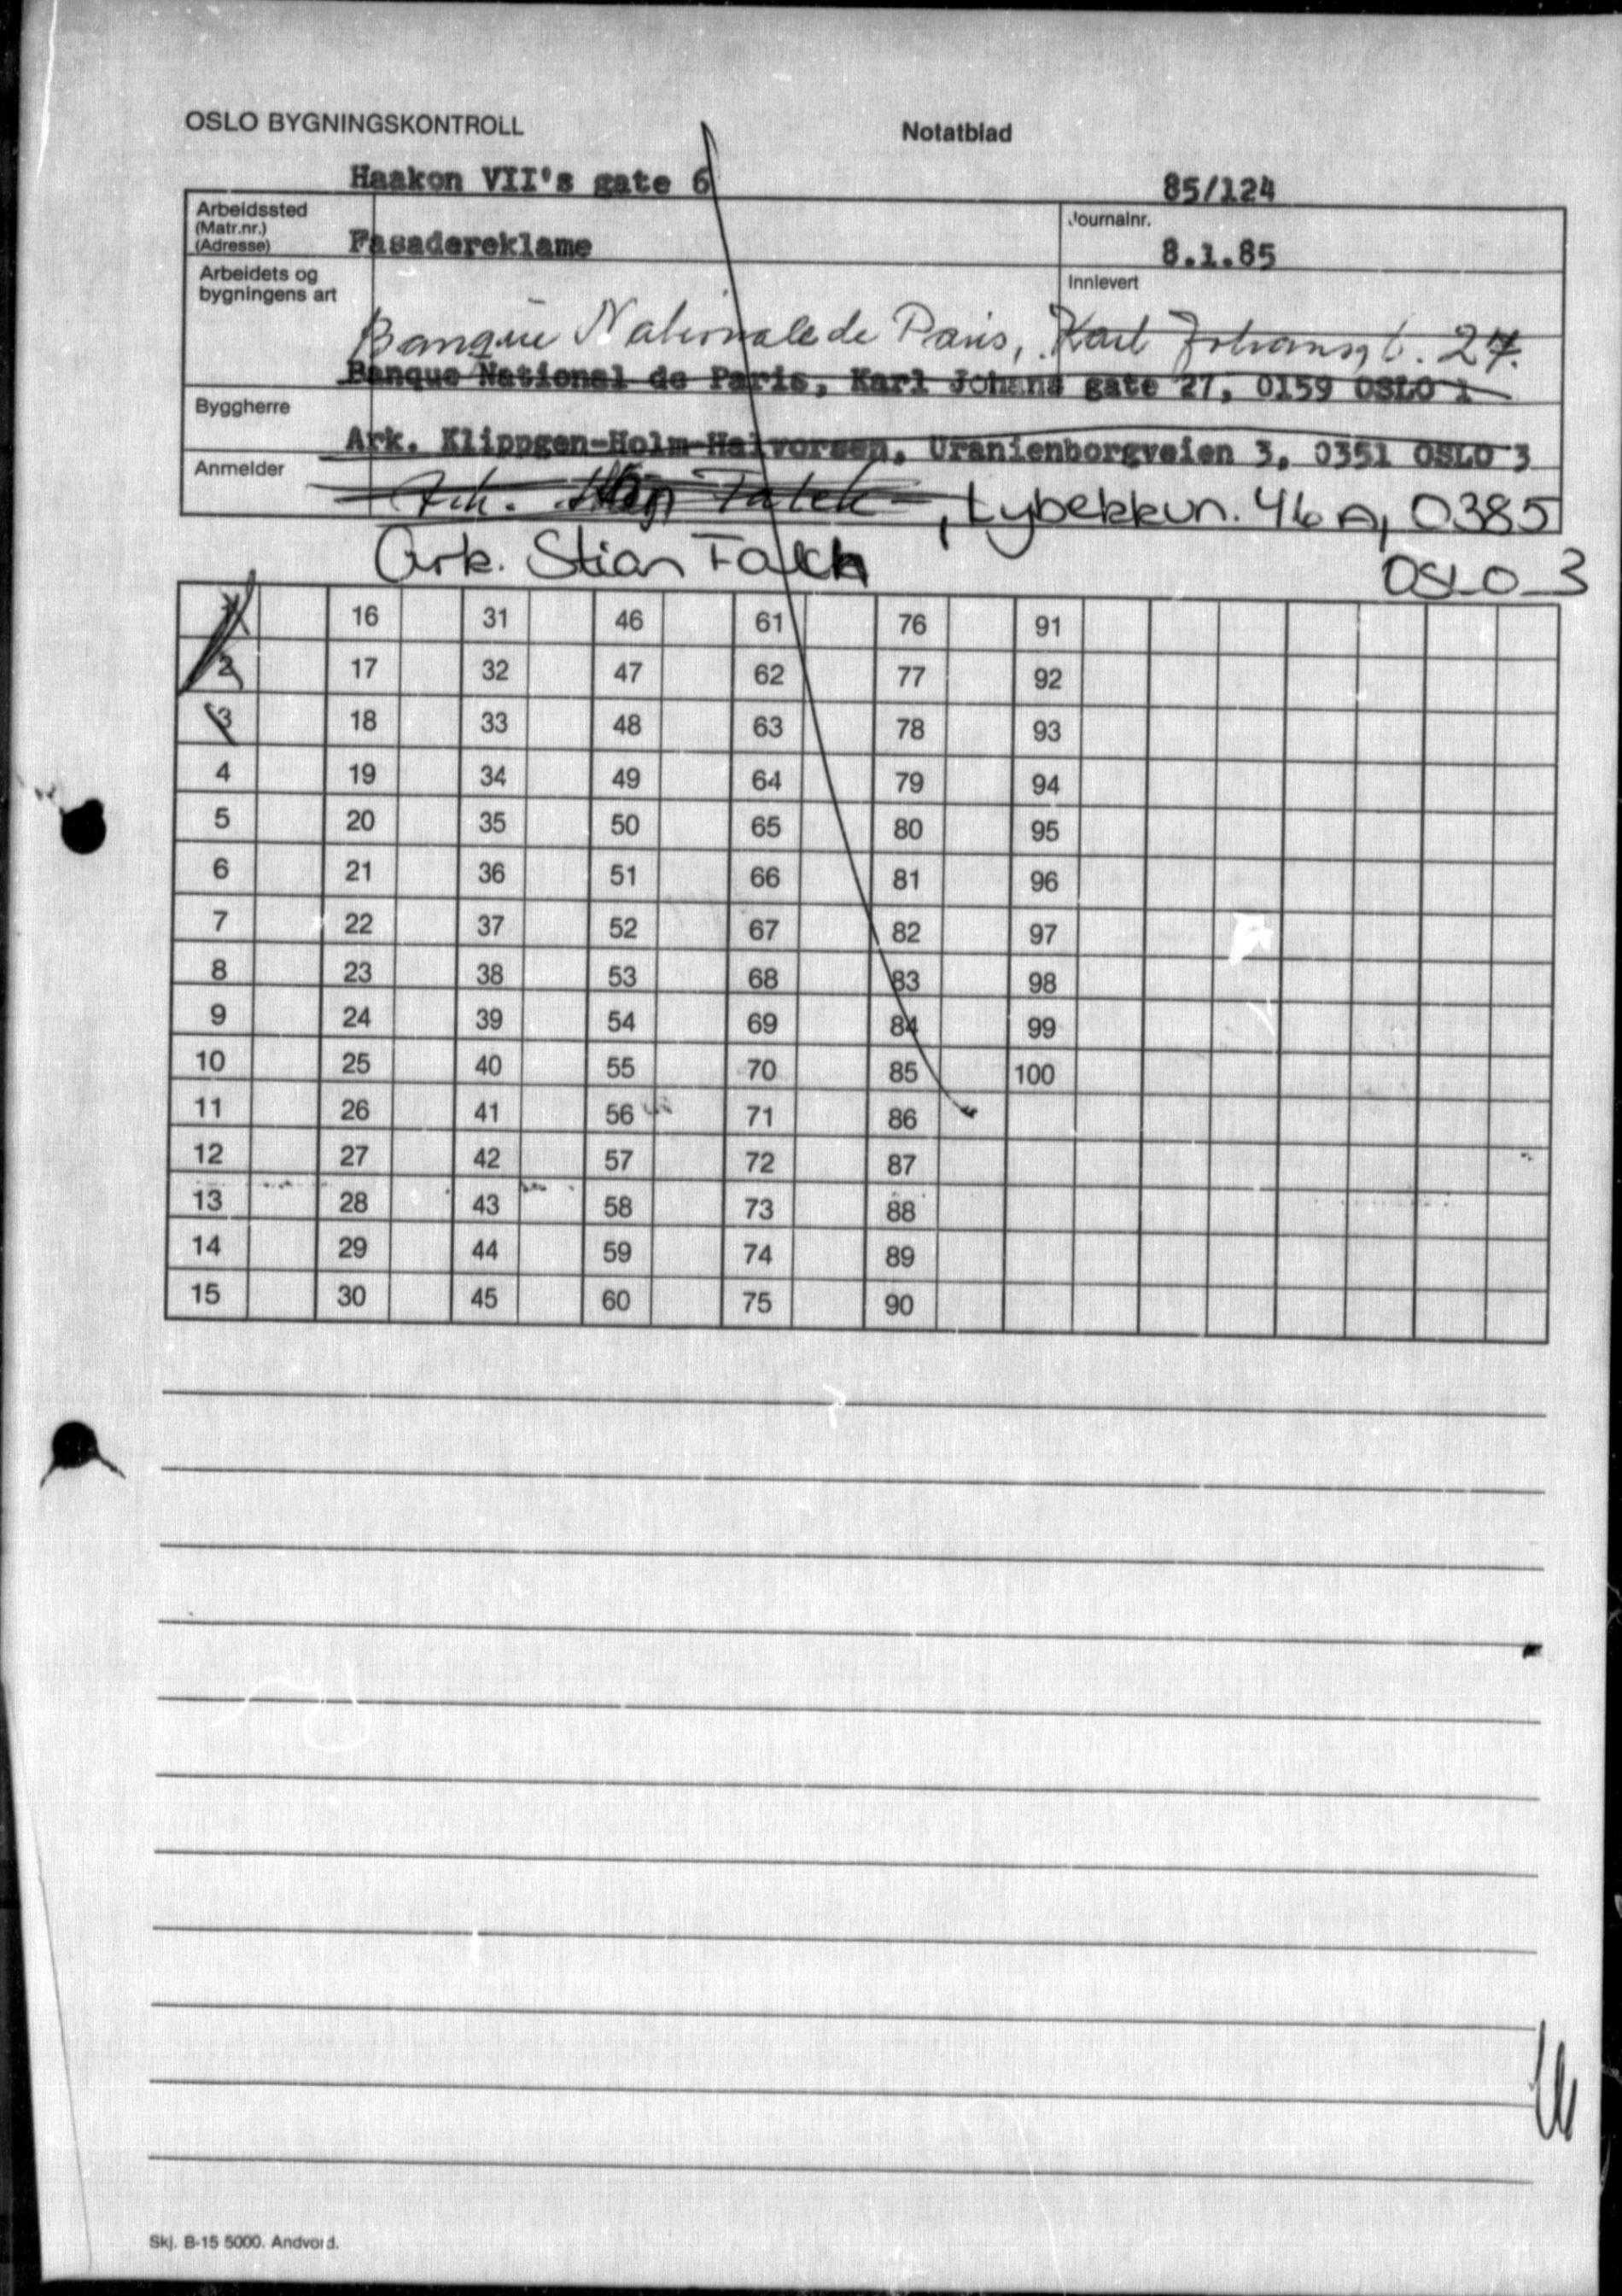 OSLO BYGNINGSKONTROLL
Notatblad
Haakon VII's gate 6
85/124
Arbeidssted
(Matr.nr.)
(Adresse)
Journalnr.
Fasadereklame
8.1.85
Arbeidets og
bygningens art
Innlevert
Banque Nationale de Paris, Karl Johansgt. 27.
Banque National de Paris, Karl Johans gate 27, 0159 OSLO 1
Byggherre
Ark. Klippgen-Holm-Halvorsen, Uranienborgveien 3, 0351 OSLO 3
Anmelder
Ark. Falck, Lybekkvn. 46 A, 0385
Ark. Stian Falch OSLO 3
1 16 31 46 61 76 91
2 17 32 47 62 77 92
3 18 33 48 63 78 93
4 19 34 49 64 79 94
5 20 35 50 65 80 95
6 21 36 51 66 81 96
7 22 37 52 67 82 97
8 23 38 53 68 83 98
9 24 39 54 69 84 99
10 25 40 55 70 85 100
11 26 41 56 71 86
12 27 42 57 72 87
13 28 43 58 73 88
14 29 44 59 74 89
15 30 45 60 75 90
Skj. B-15 5000. Andvord.